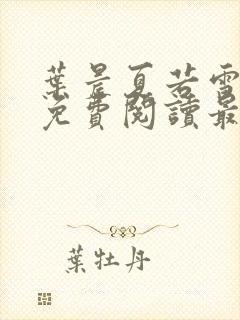 葉晨夏若雪
免費閱讀最
葉牡丹